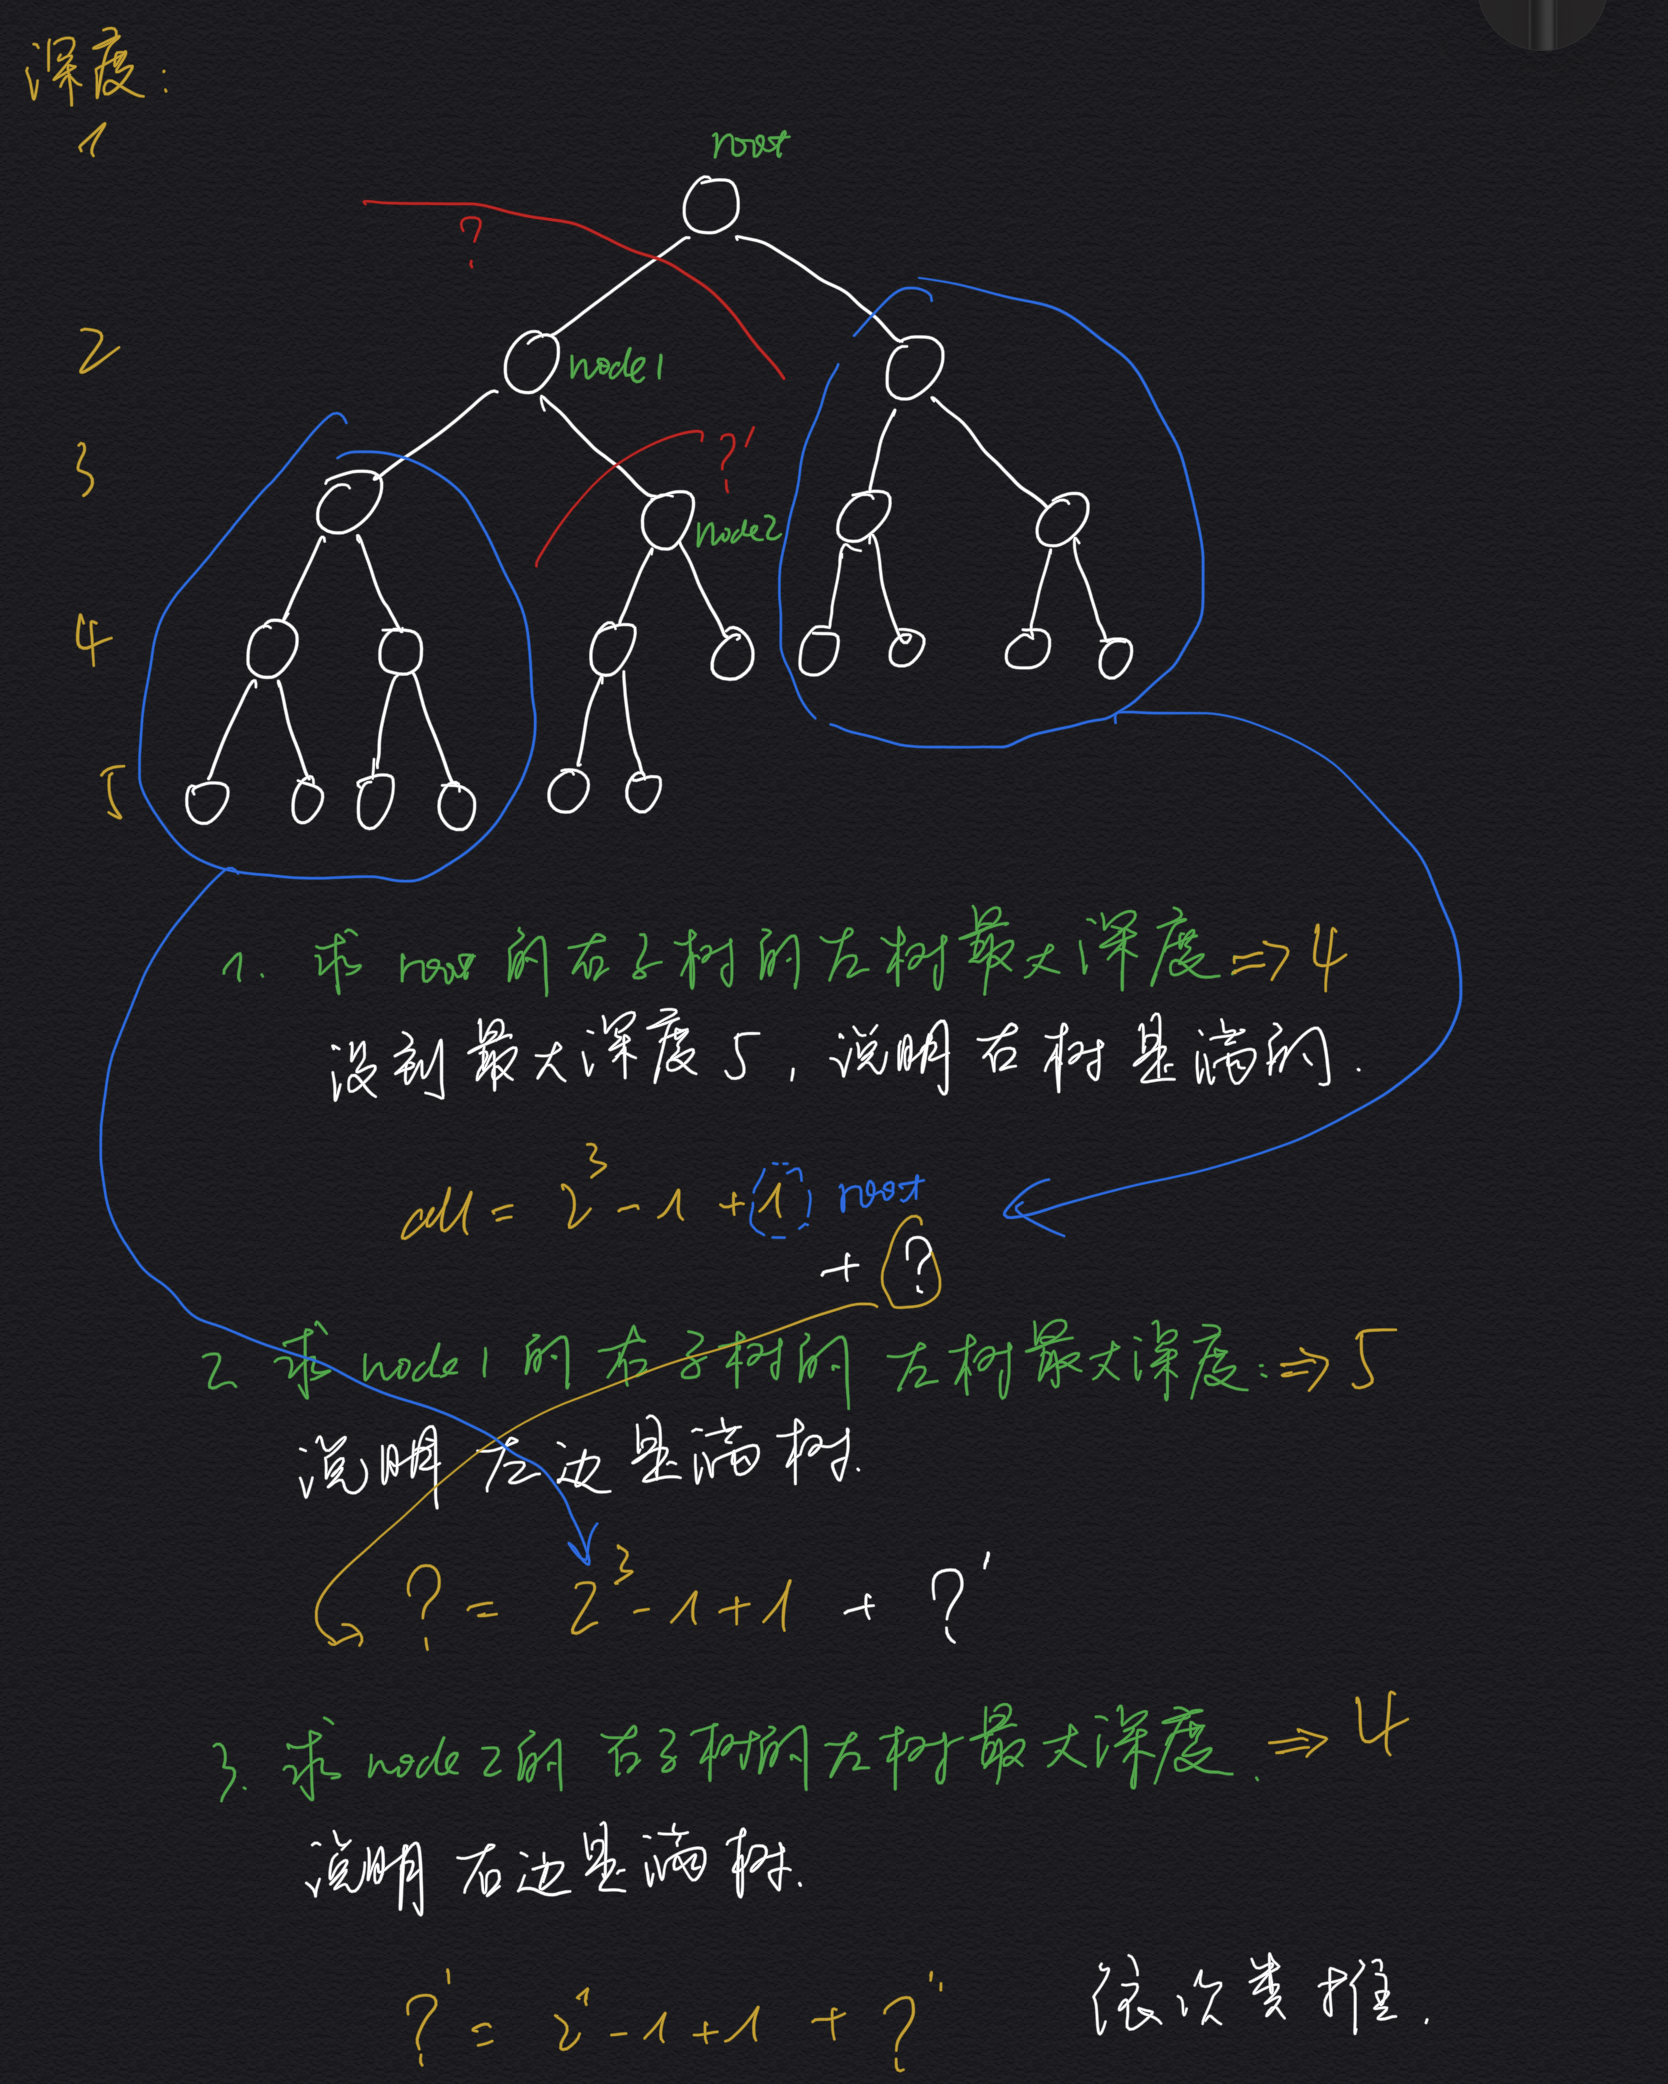 深度:
1
root
?
2
node1
3
?'
node2
4
5
1. 求 root 的右子树的左树最大深度 => 4
没到最大深度 5, 说明右树是满的.
all = 2^3 - 1 + 1 root
+ ?
2 求 node1 的右子树的 左树最大深度: => 5
说明左边是满树.
? = 2^3 - 1 + 1 + ?'
3. 求 node2 的 右子树的左树最大深度. => 4
说明右边是满树.
?' = 2^1 - 1 + 1 + ?'' 依次类推.